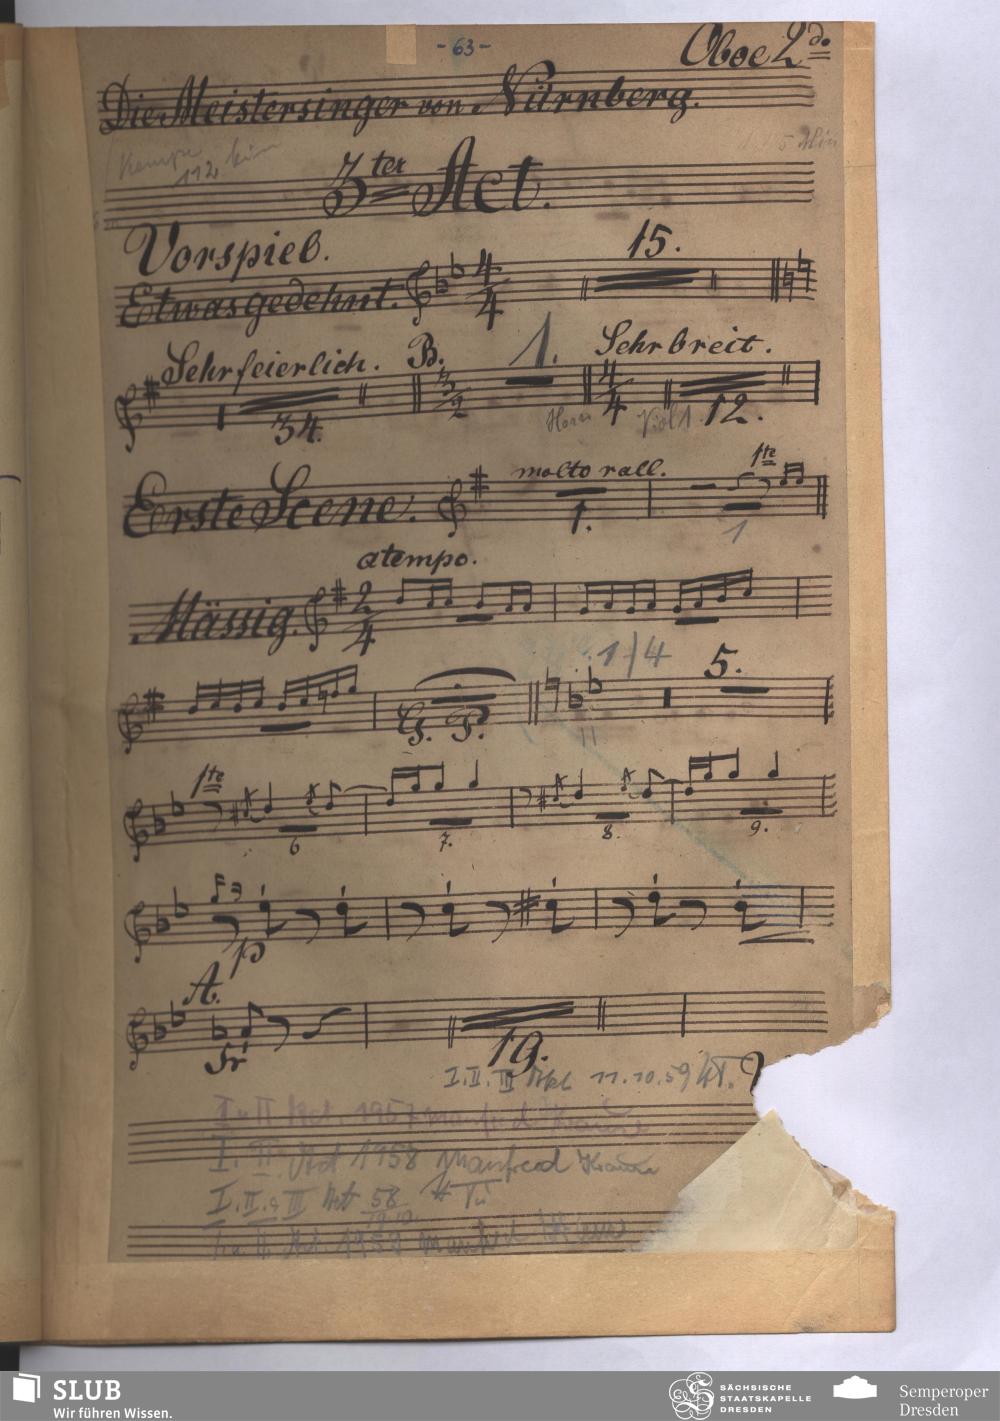 - 63 -
Oboe 2do
Die Meistersinger von Nürnberg.
Kempe
112 min
3ter Act.
Vorspiel.
15.
Etwas gedehnt. 4/4
Sehr feierlich. B. 1. Sehr breit.
3/2 4/4
34. Horn Viol 1 12.
1te
molto rall.
Erste Scene. 1.
1
a tempo.
Mässig. 2/4
1/4 5.
G. P.
1te
6 7. 8. 9.
p
A.
19.
I. II. III Akt 11.10.59
I u II Act 1957 Manfred Krause
I. II. Act 1958 Manfred Krause
I. II. u III Act 58
I u II. Act. 1958 Manfred
SLUB
Wir führen Wissen.
SÄCHSISCHE
STAATSKAPELLE
DRESDEN
Semperoper
Dresden